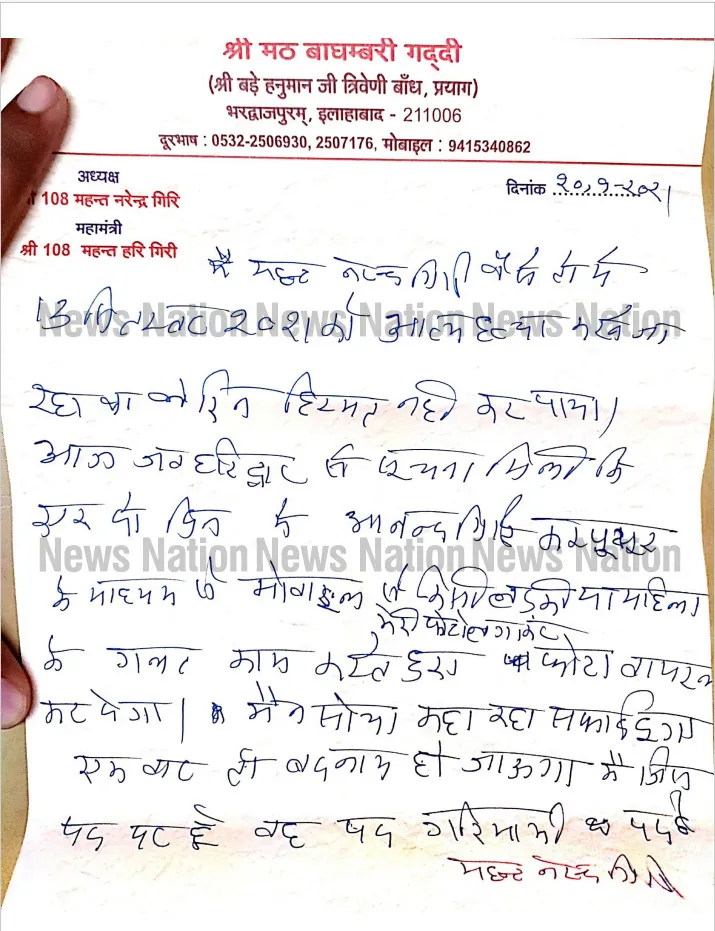 श्री मठ बाघम्बरी गद्दी
(श्री बड़े हनुमान जी त्रिवेणी बाँध, प्रयाग)
भरद्वाजपुरम्, इलाहाबाद - 211006
दूरभाष : 0532-2506930, 2507176, मोबाइल : 9415340862
अध्यक्ष
108 महन्त नरेन्द्र गिरि
दिनांक २०,९-२०२१
महामंत्री
श्री 108 महन्त हरि गिरी
मै महन्त नरेन्द्र गिरी
13 सितम्बर २०२१ को आत्म हत्या करने जा
News Nation News Nation News Nation
रहा था लेकिन हिम्मत नही कर पाया।
आज जब हरिद्वार से सूचना मिली कि
एक दो दिन के आनन्द गिरि कम्प्यूटर
News Nation News Nation News Nation
के माध्यम से मोबाइल से किसी लड़की या महिला
मेरी फोटो लगाकर
के गलत काम करते हुए फोटो वायरल
कर देगा। मैने सोचा कहा तक सफाई दूगा
एक बार तो बदनाम हो जाऊगा मै जिस
पद पर हूँ वह पद गरिमामयी पद है
महन्त नरेन्द्र गिरि